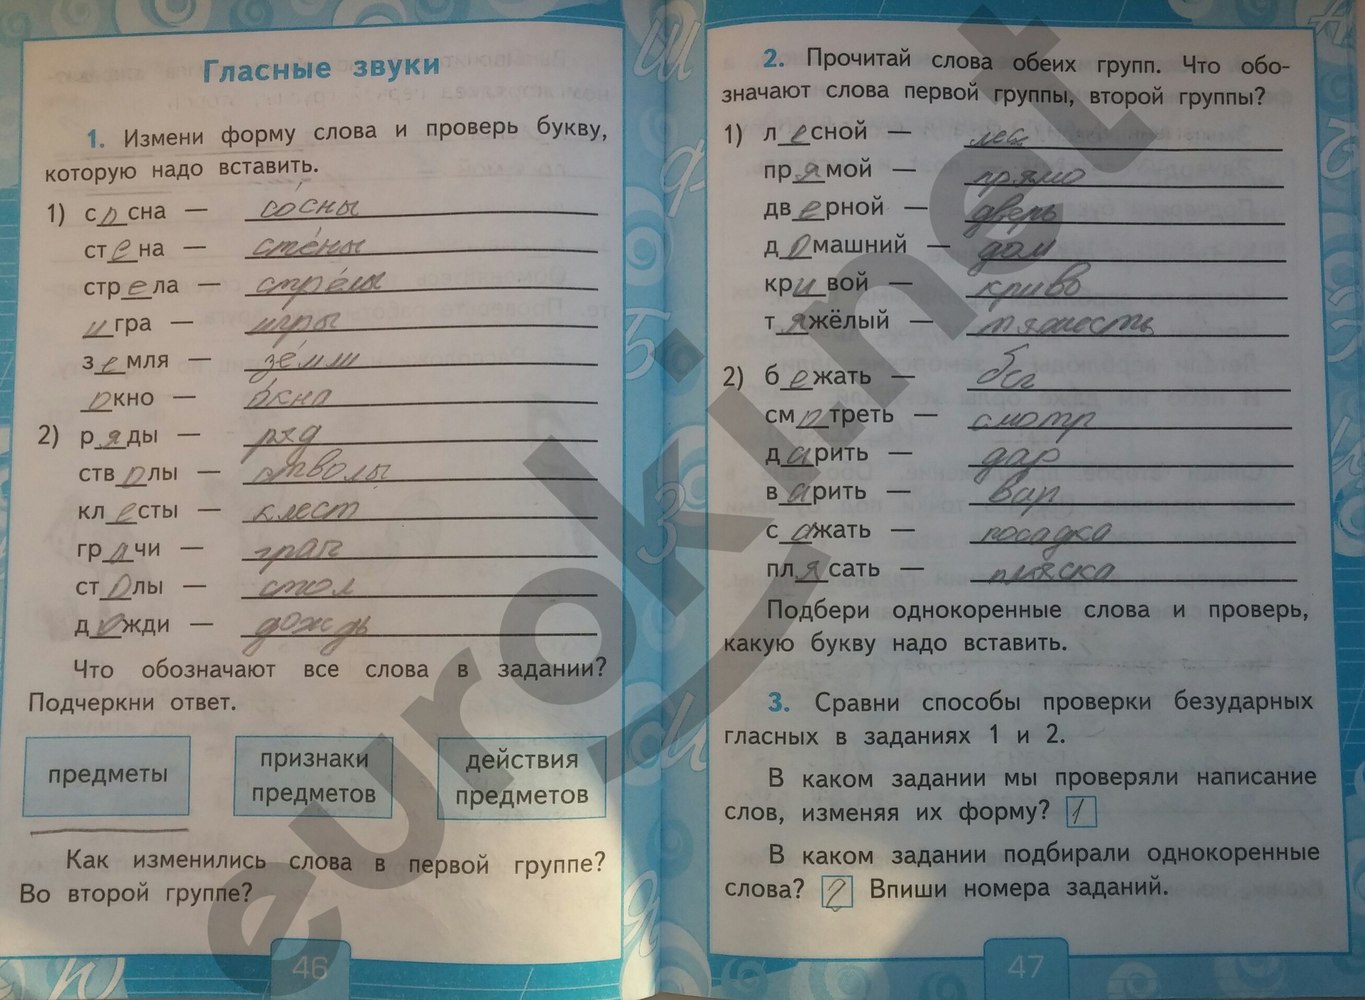 Гласные звуки
1. Измени форму слова и проверь букву,
которую надо вставить.
1) сосна — со́сны
стена — сте́ны
стрела — стре́лы
игра — игры
земля — зе́мли
окно — о́кна
2) ряды — ряд
стволы — стволы
клесты — клест
грачи — грач
столы — стол
дожди — дождь
Что обозначают все слова в задании?
Подчеркни ответ.
предметы
признаки
предметов
действия
предметов
Как изменились слова в первой группе?
Во второй группе?
46
2. Прочитай слова обеих групп. Что обо-
значают слова первой группы, второй группы?
1) лесной — лес
прямой — прямо
дверной — дверь
домашний — дом
кривой — криво
тяжёлый — тяжесть
2) бежать — бег
смотреть — смотр
дарить — дар
варить — вар
сажать — посадка
плясать — пляска
Подбери однокоренные слова и проверь,
какую букву надо вставить.
3. Сравни способы проверки безударных
гласных в заданиях 1 и 2.
В каком задании мы проверяли написание
слов, изменяя их форму? 1
В каком задании подбирали однокоренные
слова? 2 Впиши номера заданий.
47
euroki.net